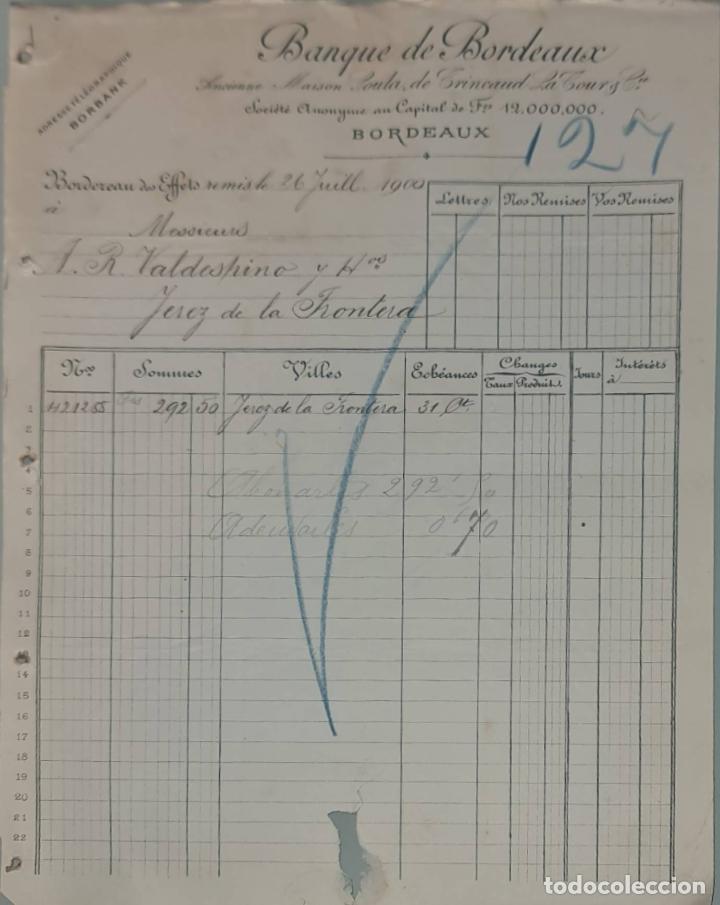 ADRESSE TÉLÉGRAPHIQUE
BORBANK
Banque de Bordeaux
Ancienne Maison Soula, de Trincaud La Tour & Cie
Société Anonyme au Capital de Frs 12.000.000.
BORDEAUX
127
Bordereau des Effets remis le 26 Juill. 1900
à
Messieurs
A. R. Valdespino y Hnos
Jerez de la Frontera
Lettres Nos Remises Vos Remises
Nos Sommes Villes Echéances Changes Jours Intérêts
Taux Produits à
1 292 50 Jerez de la Frontera 31 Ct.
2
4
5 Abonarles 292 50
6 Adeudarles 0 70
7
8
9
10
11
12
14
15
16
17
18
19
20
21
22
todocoleccion.net